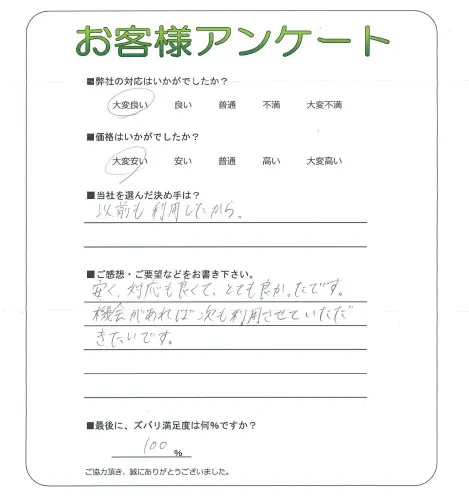 お客様アンケート
■弊社の対応はいかがでしたか？
大変良い 良い 普通 不満 大変不満
■価格はいかがでしたか？
大変安い 安い 普通 高い 大変高い
■当社を選んだ決め手は？
以前も利用したから。
■ご感想・ご要望などをお書き下さい。
安く、対応も良くて、とても良かったです。
機会があれば次も利用させていただ
きたいです。
■最後に、ズバリ満足度は何%ですか？
100 %
ご協力頂き、誠にありがとうございました。